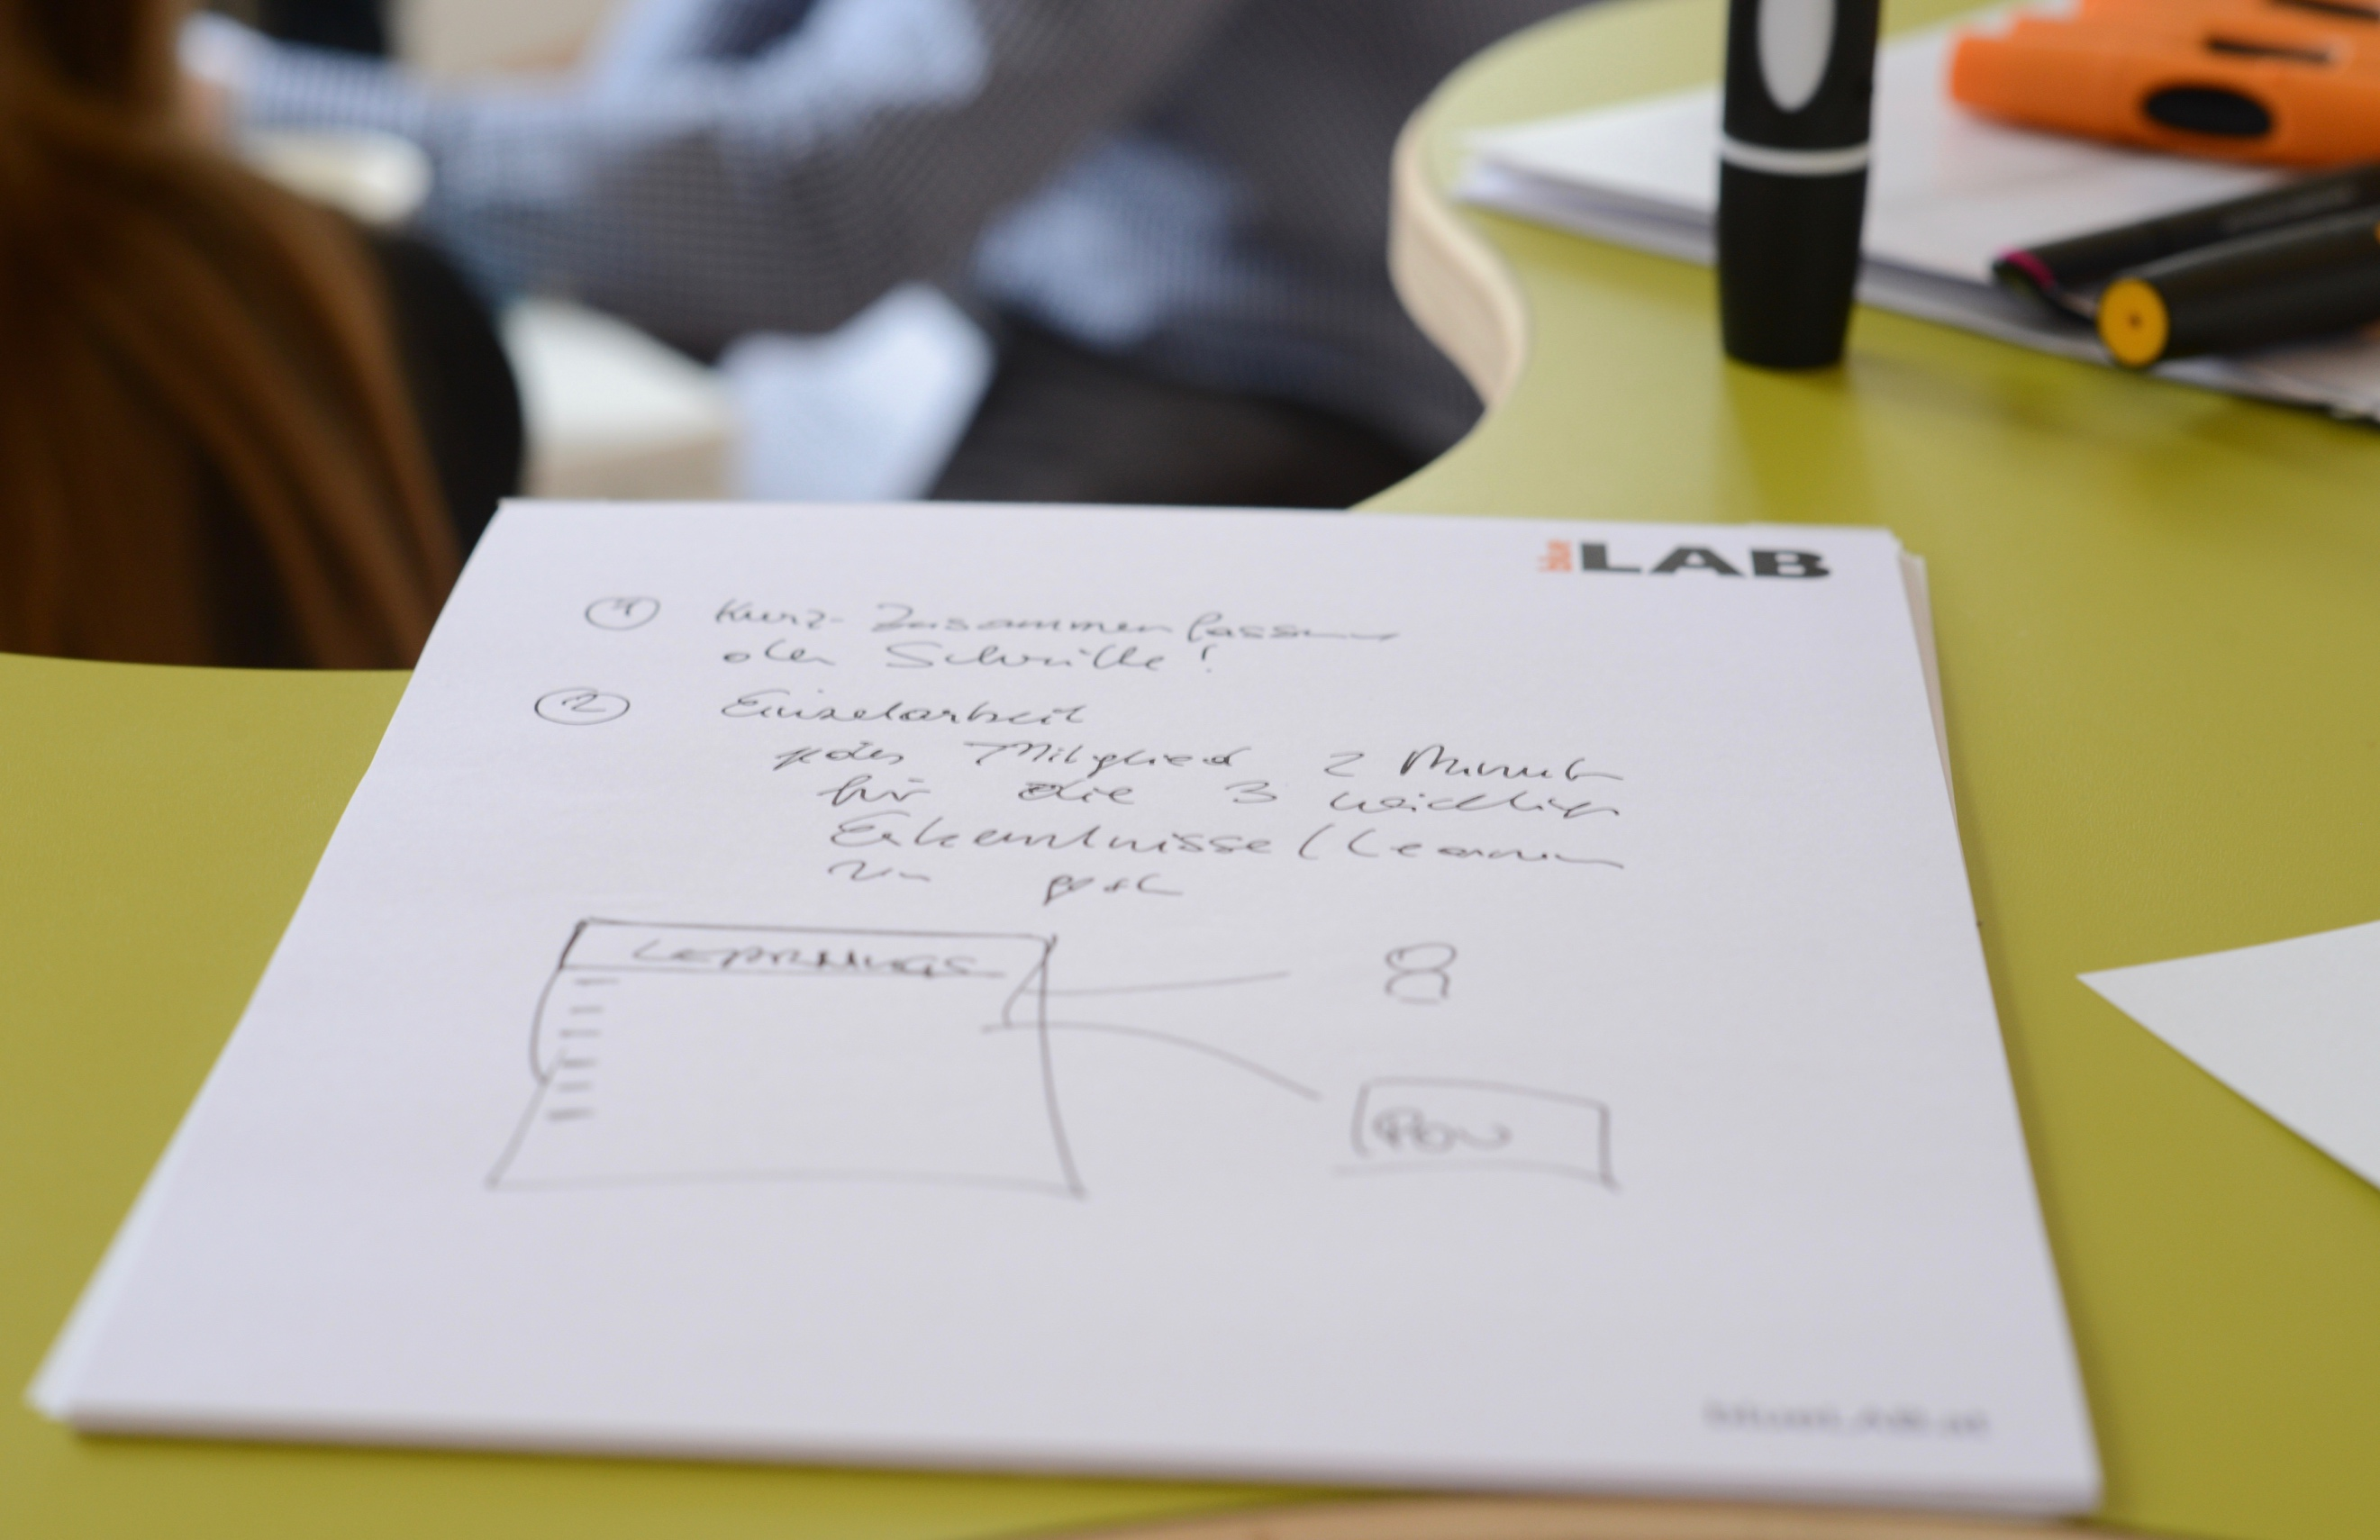 LAB
① Kurz-Zusammenfassung
der Schritte!
② Einzelarbeit
jedes Mitglied 2 Minuten
für die 3 wichtige
Erkenntnisse (Learnin
LEARNINGS